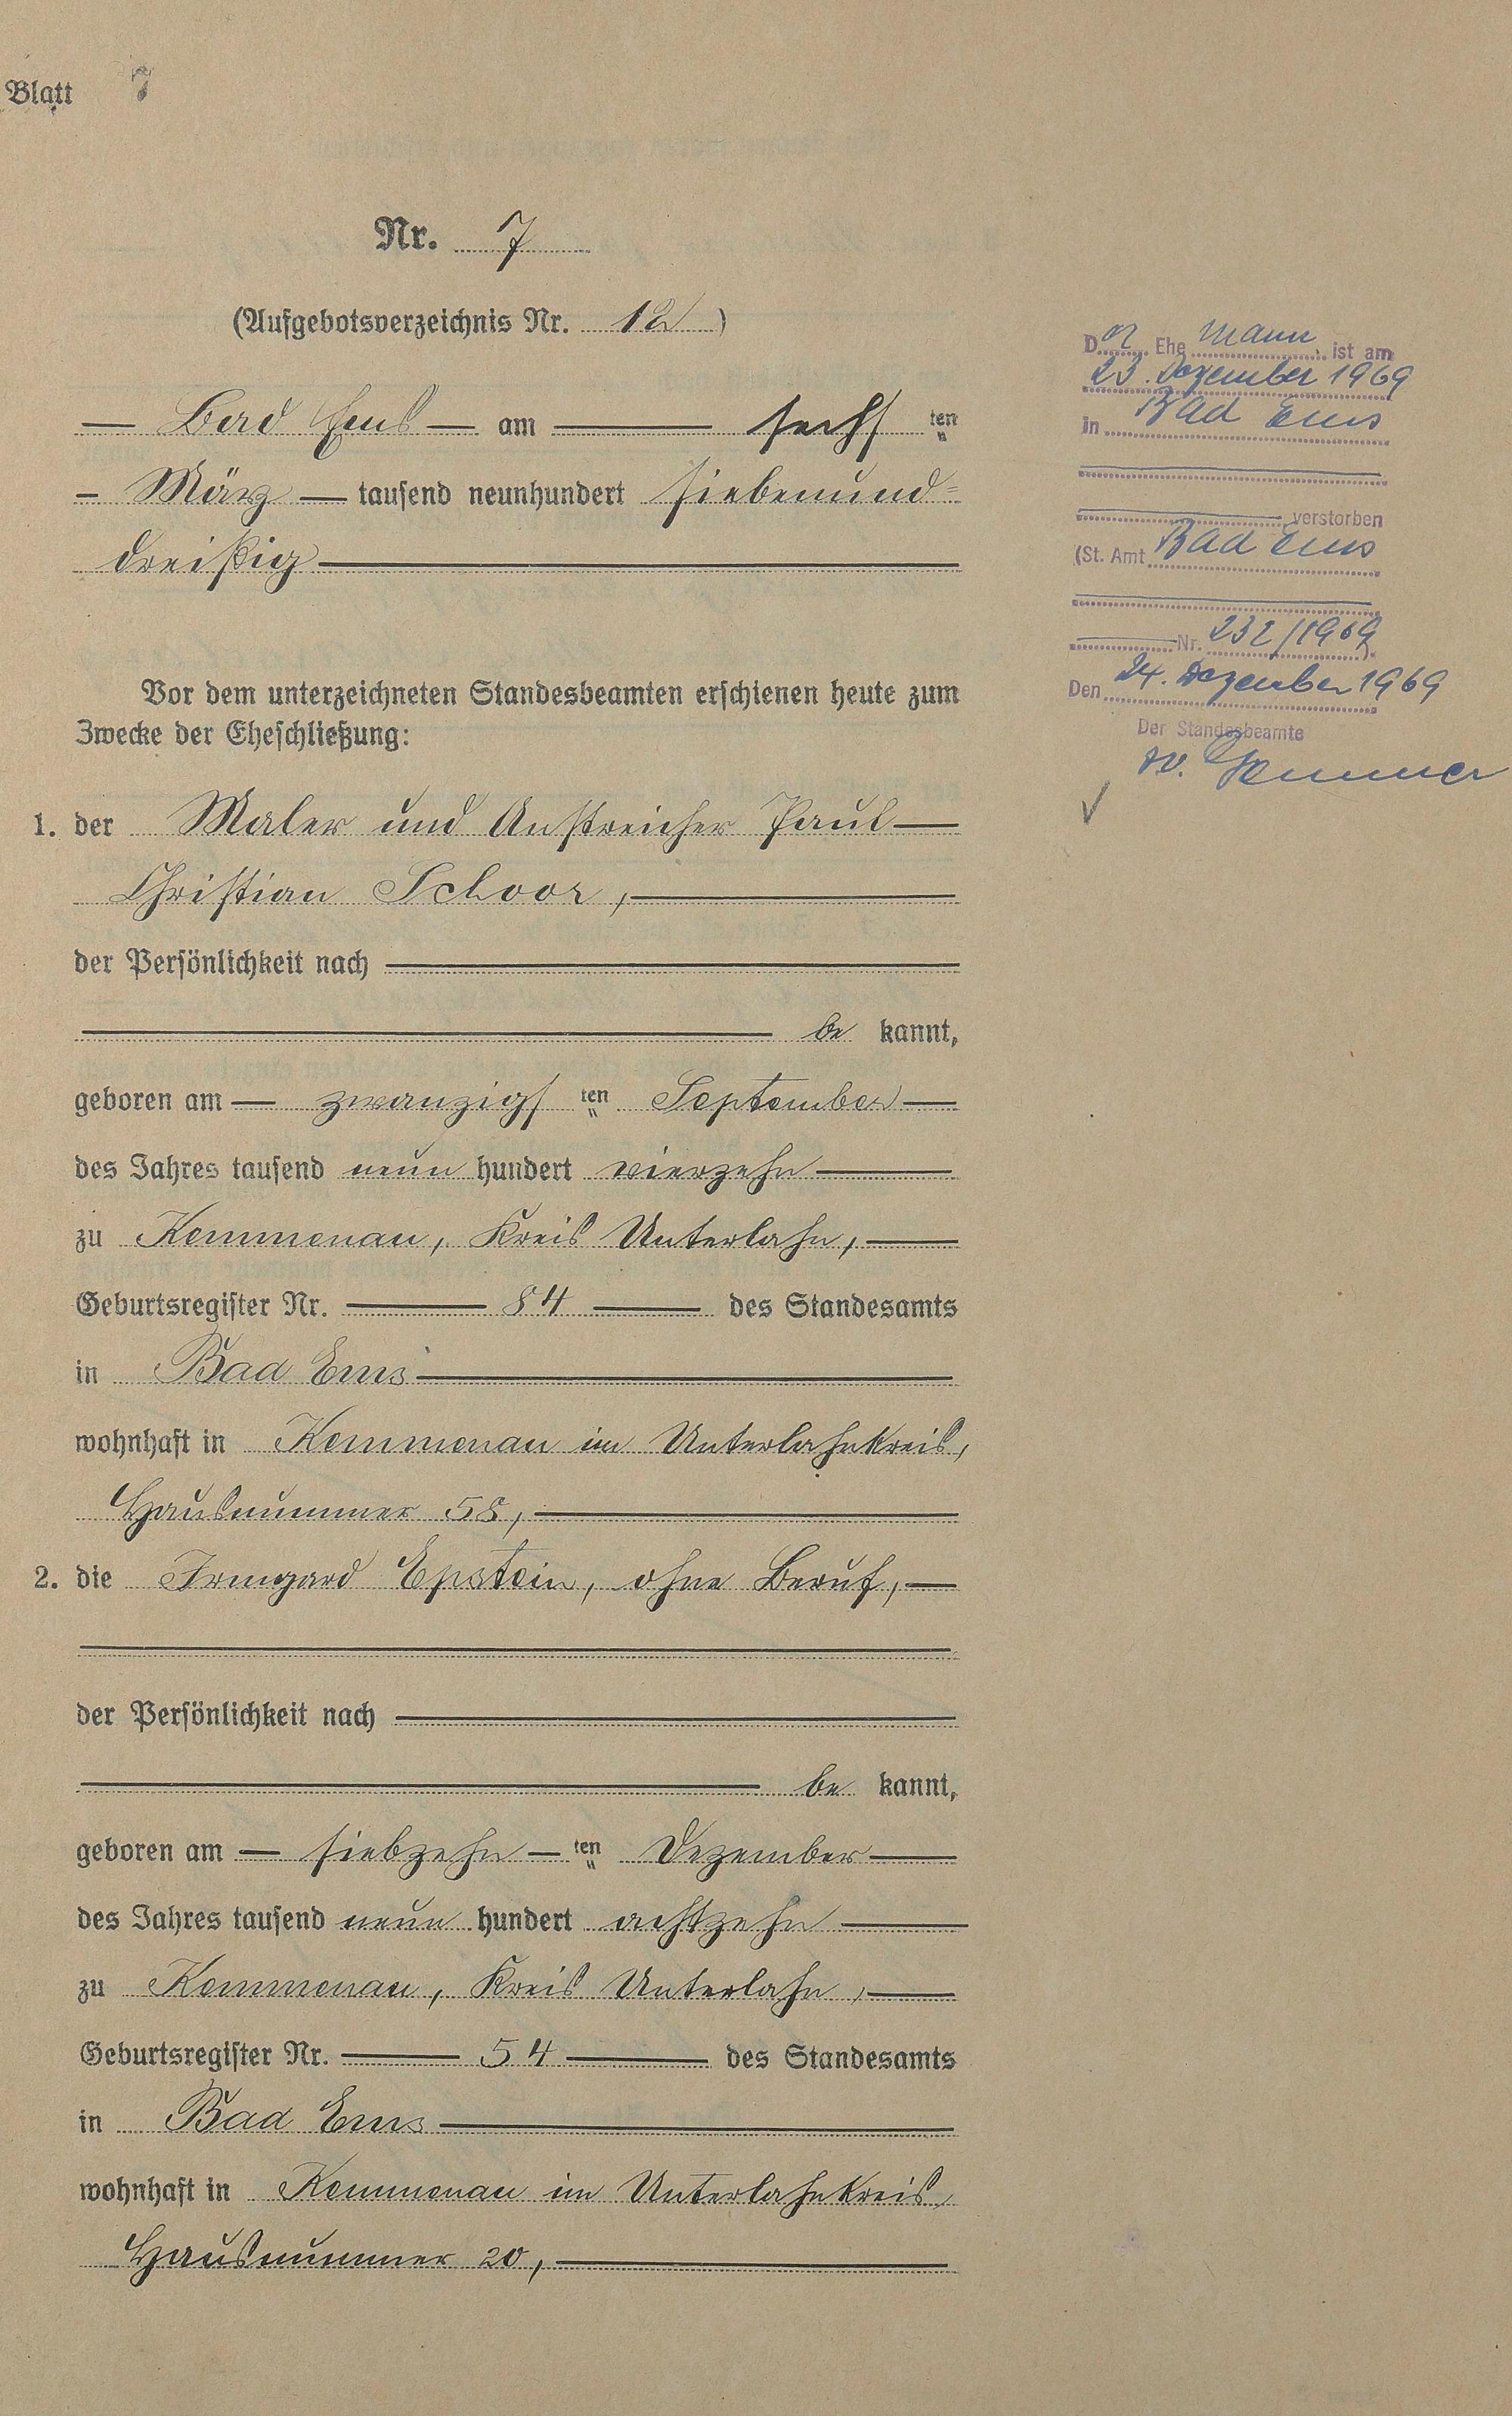 Blatt 7
Nr. 7
(Aufgebotsverzeichnis Nr. 12)
— Bad Ems — am — sechsten
– März — tausend neunhundert siebenund=
dreißig —
Vor dem unterzeichneten Standesbeamten erschienen heute zum
Zwecke der Eheschließung:
1. der Maler und Anstreicher Paul —
Christian Schoor, —
der Persönlichkeit nach —
— be kannt,
geboren am — zwanzigsten September —
des Jahres tausend neun hundert vierzehn —
zu Kemmenau, Kreis Unterlahn, —
Geburtsregister Nr. — 84 — des Standesamts
in Bad Ems —
wohnhaft in Kemmenau im Unterlahnkreis,
Hausnummer 58, —
2. die Irmgard Epstein, ohne Beruf, —
der Persönlichkeit nach —
— be kannt,
geboren am — siebzehn — ten Dezember —
des Jahres tausend neun hundert achtzehn —
zu Kemmenau, Kreis Unterlahn, —
Geburtsregister Nr. — 54 — des Standesamts
in Bad Ems —
wohnhaft in Kemmenau im Unterlahnkreis,
Hausnummer 20, —
Der Ehemann ist am
23. Dezember 1969
in Bad Ems
— verstorben
(St. Amt Bad Ems
— Nr. 232/1969).
Den 24. Dezember 1969
Der Standesbeamte